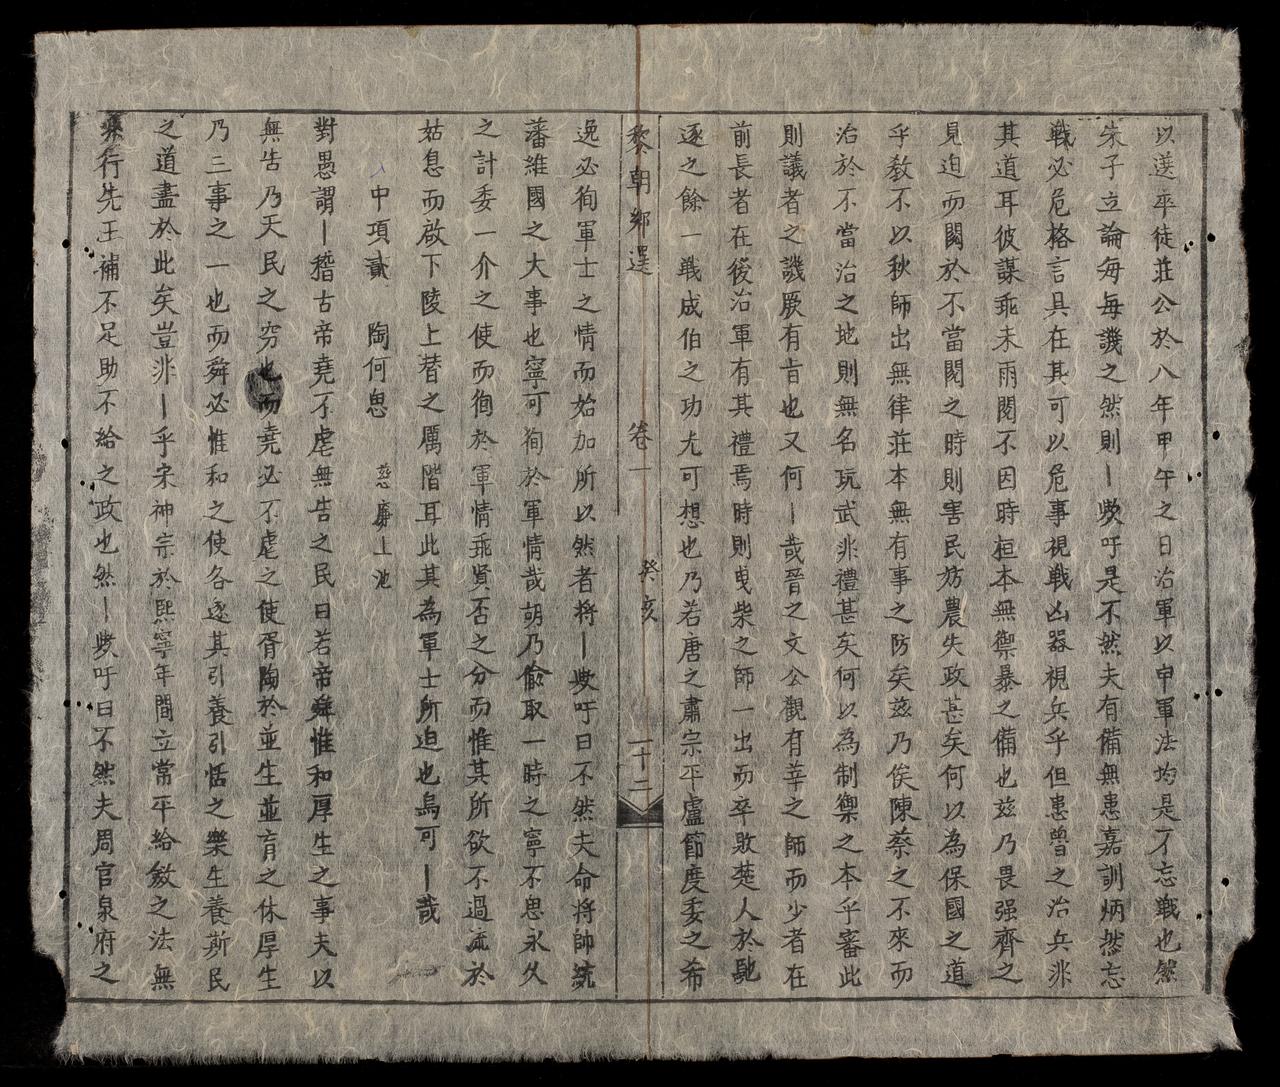 以選卒徒莊公於八年甲午之日治軍以申軍法均是不忘戰也然
朱子立論每每譏之然則〡歟吁是不然夫有備無患嘉訓炳然忘
戰必危格言具在其可以危事視戰凶器視兵乎但患魯之治兵非
其道耳彼謀乖未雨閱不因時桓本無禦暴之備也茲乃畏强齊之
見迫而閱於不當閱之時則害民妨農失政甚矣何以為保國之道
乎教不以秋師出無律莊本無有事之防矣茲乃俟陳蔡之不來而
治於不當治之地則無名玩武非禮甚矣何以為制禦之本乎審此
則議者之譏厥有旨也又何〡哉晉之文公觀有莘之師而少者在
前長者在後治軍有其禮焉時則曳柴之師一出而卒敗楚人於馳
逐之餘一戰成伯之功尤可想也乃若唐之肅宗平盧節度委之希
黎朝鄉選 卷一 癸亥 二十二
逸必徇軍士之情而始加所以然者將〡歟吁曰不然夫命將帥統
藩維國之大事也寧可徇於軍情哉胡乃偷取一時之寧不思永久
之計委一介之使而徇於軍情乖賢否之分而惟其所欲不過流於
姑息而啟下陵上替之厲階耳此其為軍士所迫也烏可〡哉
中項貳 陶何思 慈廉上池
對愚謂〡稽古帝堯不虐無告之民曰若帝舜惟和厚生之事夫以
無告乃天民之穷也而堯必不虐之使胥陶於並生並育之休厚生
乃三事之一也而舜必惟和之使各遂其引養引恬之樂生養斯民
之道盡於此矣豈非〡乎宋神宗於熙寧年間立常平給斂之法無
非行先王補不足助不給之政也然〡歟吁曰不然夫周官泉府之